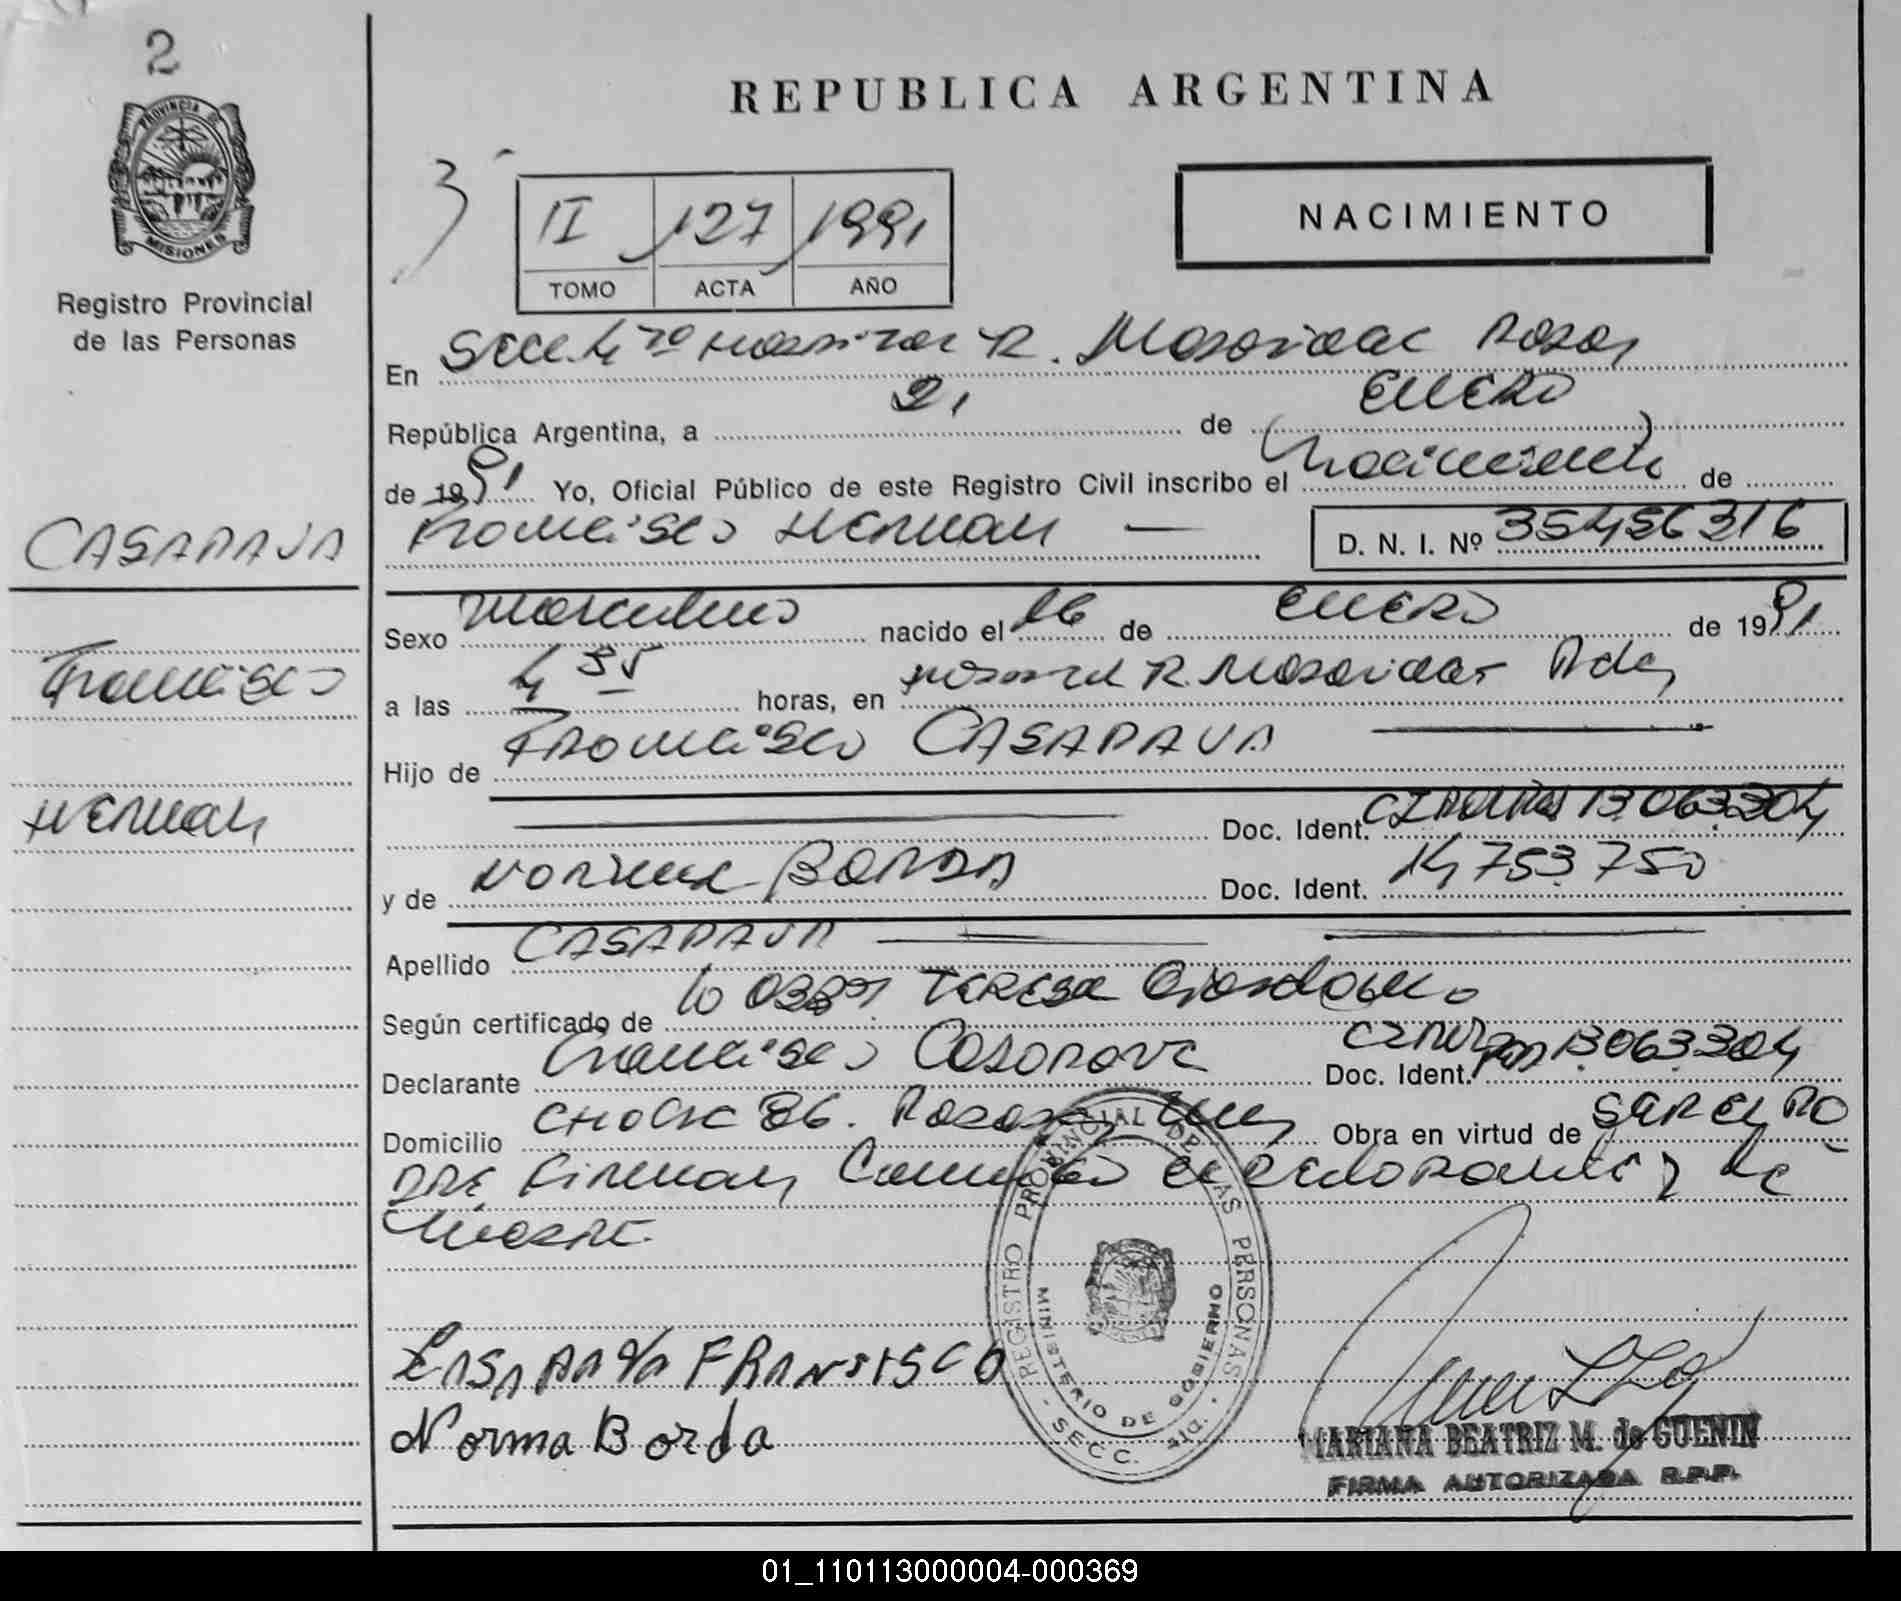 2
PROVINCIA DE
MISIONES
Registro Provincial
de las Personas
REPUBLICA ARGENTINA
NACIMIENTO
3
II 127 1991
TOMO ACTA AÑO
En Secc. 4ta R. Posadas
República Argentina, a 21 de ENERO
de 1991 Yo, Oficial Público de este Registro Civil inscribo el Nacimiento de
Francisco Hernan — D. N. I. Nº 35456316
CASARAVA
Francisco
Hernan
Sexo Masculino nacido el 16 de ENERO de 1991
a las 4 35 horas, en R. Pdas
Hijo de Francisco CASARAVA
Doc. Ident. 13.063.304
y de Norma BORDA Doc. Ident. 14.753.750
Apellido CASARAVA
Según certificado de TERESA
Declarante Francisco Doc. Ident. 13063.304
Domicilio 86. Posadas Obra en virtud de SER EL PA
DRE Firman la
Madre.
CASARAVA FRANSISCO
Norma Borda
REGISTRO PROVINCIAL DE LAS PERSONAS
MINISTERIO DE GOBIERNO
SECC. 4ta
MARIANA BEATRIZ M. de GUENIN
FIRMA AUTORIZADA R.P.P.
01_110113000004-000369